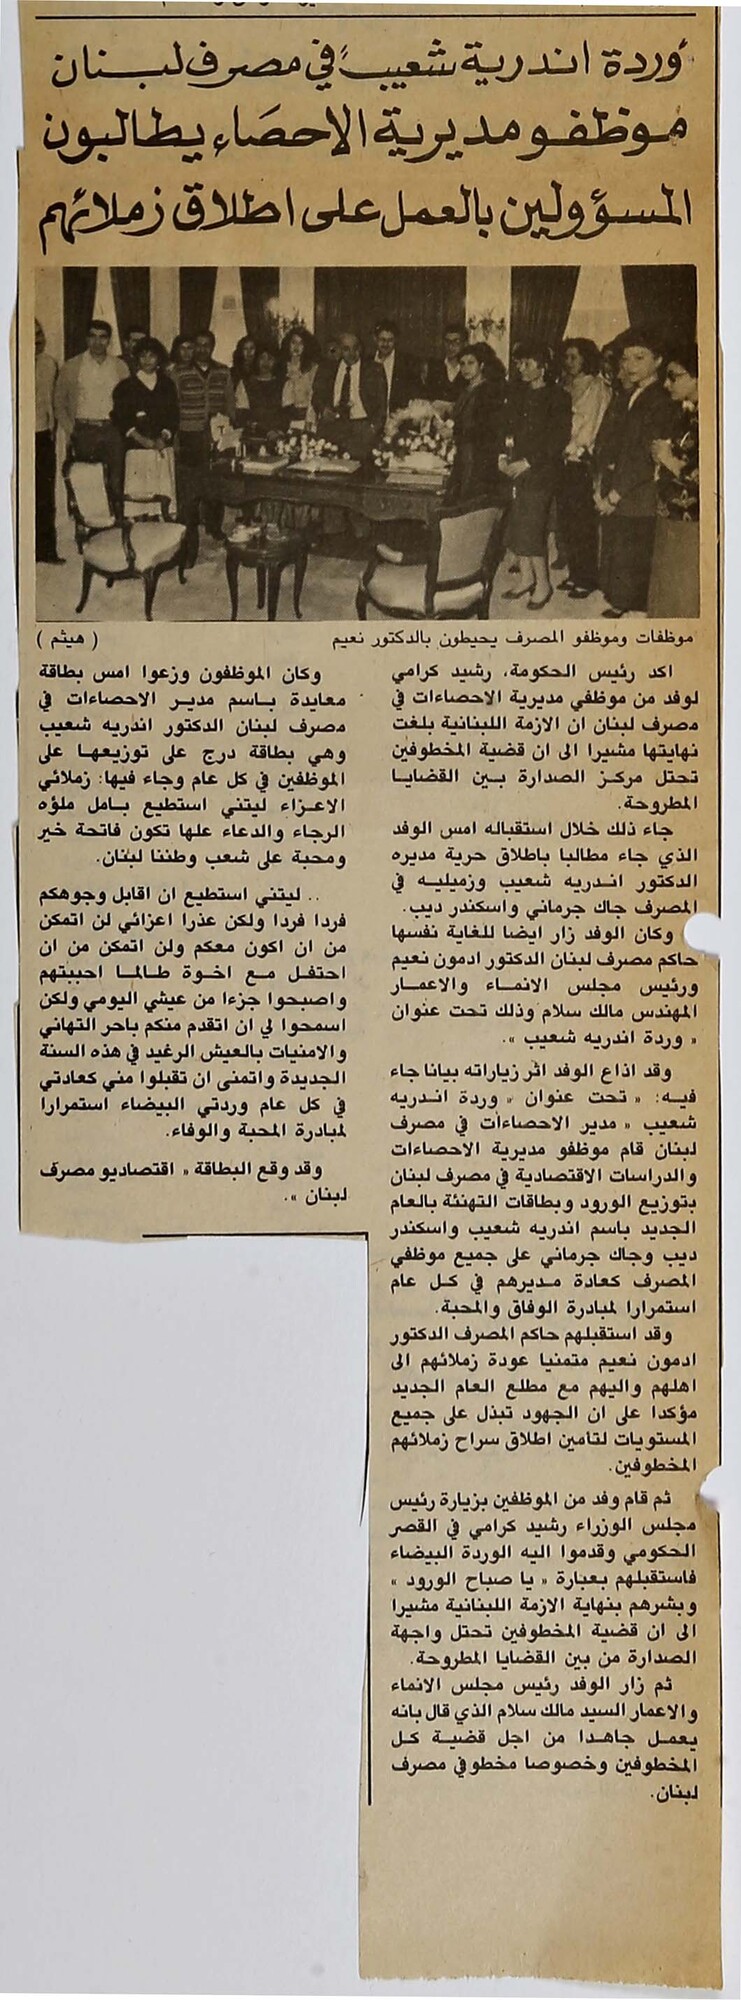 "وردة اندريه شعيب" في مصرف لبنان
موظفو مديرية الاحصاء يطالبون
المسؤولين بالعمل على اطلاق زملائهم
موظفات وموظفو المصرف يحيطون بالدكتور نعيم ( هيثم )
اكد رئيس الحكومة، رشيد كرامي
لوفد من موظفي مديرية الاحصاءات في
مصرف لبنان ان الازمة اللبنانية بلغت
نهايتها مشيرا الى ان قضية المخطوفين
تحتل مركز الصدارة بين القضايا
المطروحة.
جاء ذلك خلال استقباله امس الوفد
الذي جاء مطالبا باطلاق حرية مديره
الدكتور اندريه شعيب وزميليه في
المصرف جاك جرماني واسكندر ديب.
وكان الوفد زار ايضا للغاية نفسها
حاكم مصرف لبنان الدكتور ادمون نعيم
ورئيس مجلس الانماء والاعمار
المهندس مالك سلام وذلك تحت عنوان
« وردة اندريه شعيب ».
وقد اذاع الوفد اثر زياراته بيانا جاء
فيه: « تحت عنوان « وردة اندريه
شعيب » مدير الاحصاءات في مصرف
لبنان قام موظفو مديرية الاحصاءات
والدراسات الاقتصادية في مصرف لبنان
بتوزيع الورود وبطاقات التهنئة بالعام
الجديد باسم اندريه شعيب واسكندر
ديب وجاك جرماني على جميع موظفي
المصرف كعادة مديرهم في كل عام
استمرارا لمبادرة الوفاق والمحبة.
وقد استقبلهم حاكم المصرف الدكتور
ادمون نعيم متمنيا عودة زملائهم الى
اهلهم واليهم مع مطلع العام الجديد
مؤكدا على ان الجهود تبذل على جميع
المستويات لتامين اطلاق سراح زملائهم
المخطوفين.
ثم قام وفد من الموظفين بزيارة رئيس
مجلس الوزراء رشيد كرامي في القصر
الحكومي وقدموا اليه الوردة البيضاء
فاستقبلهم بعبارة « يا صباح الورود »
وبشرهم بنهاية الازمة اللبنانية مشيرا
الى ان قضية المخطوفين تحتل واجهة
الصدارة من بين القضايا المطروحة.
ثم زار الوفد رئيس مجلس الانماء
والاعمار السيد مالك سلام الذي قال بانه
يعمل جاهدا من اجل قضية كل
المخطوفين وخصوصا مخطوفي مصرف
لبنان.
وكان الموظفون وزعوا امس بطاقة
معايدة باسم مدير الاحصاءات في
مصرف لبنان الدكتور اندريه شعيب
وهي بطاقة درج على توزيعها على
الموظفين في كل عام وجاء فيها: زملائي
الاعزاء ليتني استطيع بامل ملؤه
الرجاء والدعاء علها تكون فاتحة خير
ومحبة على شعب وطننا لبنان.
.. ليتني استطيع ان اقابل وجوهكم
فردا فردا ولكن عذرا اعزائي لن اتمكن
من ان اكون معكم ولن اتمكن من ان
احتفل مع اخوة طالما احببتهم
واصبحوا جزءا من عيشي اليومي ولكن
اسمحوا لي ان اتقدم منكم باحر التهاني
والامنيات بالعيش الرغيد في هذه السنة
الجديدة واتمنى ان تقبلوا مني كعادتي
في كل عام وردتي البيضاء استمرارا
لمبادرة المحبة والوفاء.
وقد وقع البطاقة « اقتصاديو مصرف
لبنان ».